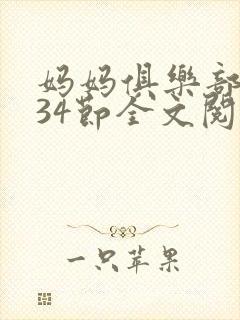 妈妈俱樂部
34节全文阅
一只苹果